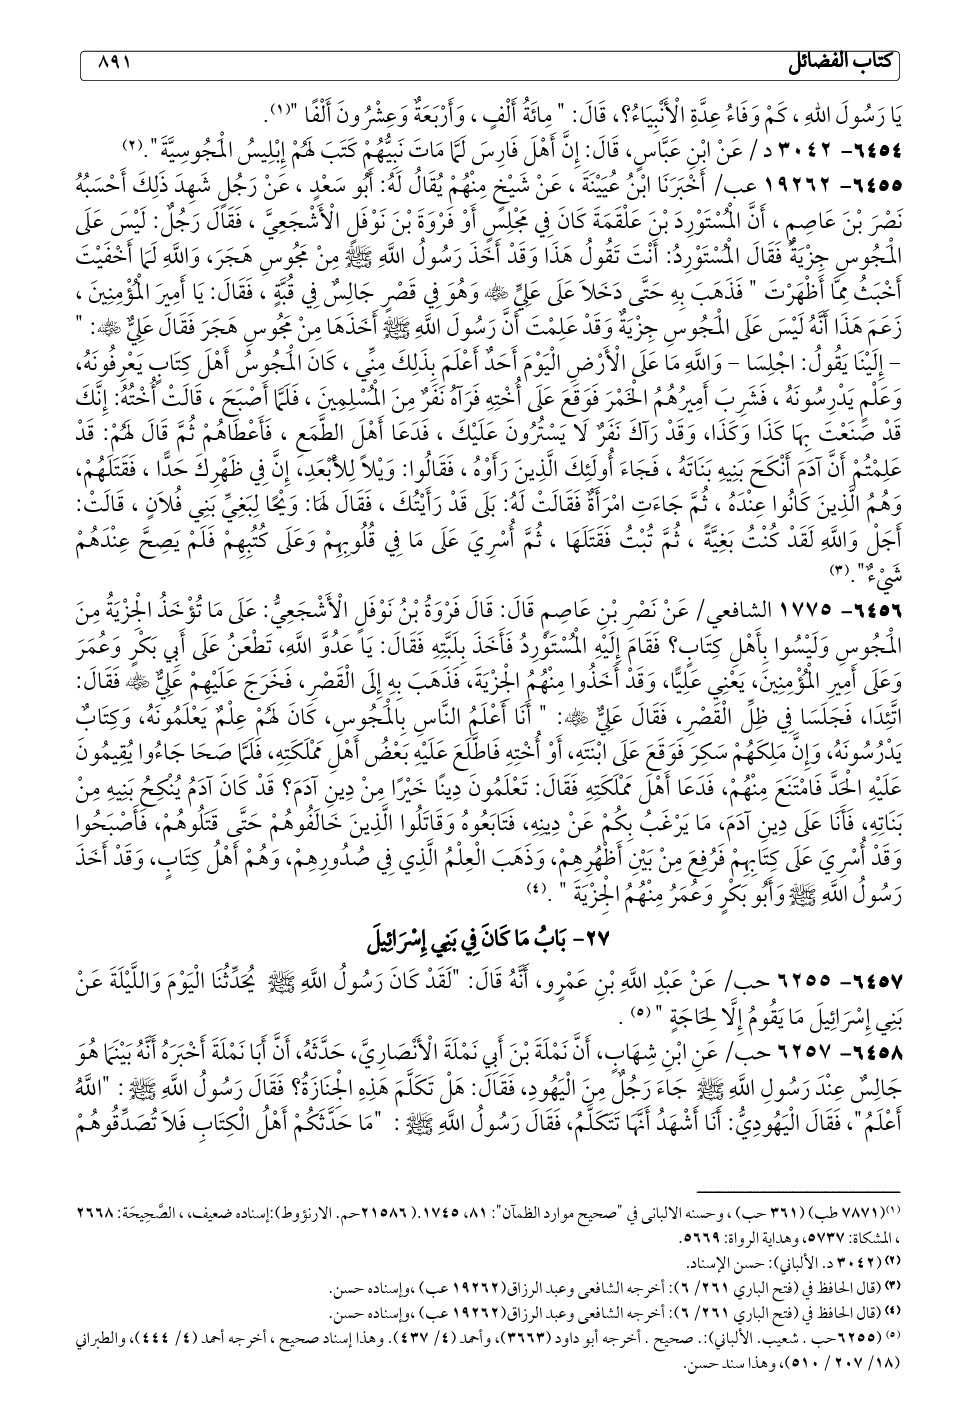 كتاب الفضائل ٨٩١
يَا رَسُولَ اللهِ ، كَمْ وَفَاءُ عِدَّةِ الْأَنْبِيَاءُ؟، قَالَ: " مِائَةُ أَلْفٍ ، وَأَرْبَعَةٌ وَعِشْرُونَ أَلْفًا "(١).
٦٤٥٤- ٣٠٤٢ د / عَنْ ابْنِ عَبَّاسٍ، قَالَ: إِنَّ أَهْلَ فَارِسَ لَمَّا مَاتَ نَبِيُّهُمْ كَتَبَ لَهُمْ إِبْلِيسُ الْمَجُوسِيَّةَ".(٢)
٦٤٥٥- ١٩٢٦٢ عب/ أَخْبَرَنَا ابْنُ عُيَيْنَةَ ، عَنْ شَيْخٍ مِنْهُمْ يُقَالُ لَهُ: أَبُو سَعْدٍ ، عَنْ رَجُلٍ شَهِدَ ذَلِكَ أَحْسَبُهُ
نَصْرَ بْنَ عَاصِمٍ ، أَنَّ الْمُسْتَوْرِدَ بْنَ عَلْقَمَةَ كَانَ فِي مَجْلِسٍ أَوْ فَرْوَةَ بْنَ نَوْفَلٍ الْأَشْجَعِيَّ ، فَقَالَ رَجُلٌ: لَيْسَ عَلَى
الْمَجُوسِ جِزْيَةٌ فَقَالَ الْمُسْتَوْرِدُ: أَنْتَ تَقُولُ هَذَا وَقَدْ أَخَذَ رَسُولُ اللَّهِ ﷺ مِنْ مَجُوسِ هَجَرَ، وَاللَّهِ لَمَا أَخْفَيْتَ
أَخْبَثُ مِمَّا أَظْهَرْتَ " فَذَهَبَ بِهِ حَتَّى دَخَلَا عَلَى عَلِيٍّ ﵁ وَهُوَ فِي قَصْرٍ جَالِسٌ فِي قُبَّةٍ ، فَقَالَ: يَا أَمِيرَ الْمُؤْمِنِينَ ،
زَعَمَ هَذَا أَنَّهُ لَيْسَ عَلَى الْمَجُوسِ جِزْيَةٌ وَقَدْ عَلِمْتَ أَنَّ رَسُولَ اللَّهِ ﷺ أَخَذَهَا مِنْ مَجُوسِ هَجَرَ فَقَالَ عَلِيٌّ ﵁: "
- إِلَيْنَا يَقُولُ: اجْلِسَا - وَاللَّهِ مَا عَلَى الْأَرْضِ الْيَوْمَ أَحَدٌ أَعْلَمَ بِذَلِكَ مِنِّي ، كَانَ الْمَجُوسُ أَهْلَ كِتَابٍ يَعْرِفُونَهُ،
وَعَلْمٍ يَدْرِسُونَهُ ، فَشَرِبَ أَمِيرُهُمُ الْخَمْرَ فَوَقَعَ عَلَى أُخْتِهِ فَرَآهُ نَفَرٌ مِنَ الْمُسْلِمِينَ ، فَلَمَّا أَصْبَحَ ، قَالَتْ أُخْتُهُ: إِنَّكَ
قَدْ صَنَعْتَ بِهَا كَذَا وَكَذَا، وَقَدْ رَآكَ نَفَرٌ لَا يَسْتُرُونَ عَلَيْكَ ، فَدَعَا أَهْلَ الطَّمَعِ ، فَأَعْطَاهُمْ ثُمَّ قَالَ لَهُمْ: قَدْ
عَلِمْتُمْ أَنَّ آدَمَ أَنْكَحَ بَنِيهِ بَنَاتَهُ ، فَجَاءَ أُولَئِكَ الَّذِينَ رَأَوْهُ ، فَقَالُوا: وَيْلًا لِلْأَبْعَدِ، إِنَّ فِي ظَهْرِكَ حَدًّا ، فَقَتَلَهُمْ،
وَهُمُ الَّذِينَ كَانُوا عِنْدَهُ ، ثُمَّ جَاءَتِ امْرَأَةٌ فَقَالَتْ لَهُ: بَلَى قَدْ رَأَيْتُكَ ، فَقَالَ لَهَا: وَيْحًا لِبَغِيِّ بَنِي فُلَانٍ ، قَالَتْ:
أَجَلْ وَاللَّهِ لَقَدْ كُنْتُ بَغِيَّةً ، ثُمَّ تُبْتُ فَقَتَلَهَا ، ثُمَّ أُسْرِيَ عَلَى مَا فِي قُلُوبِهِمْ وَعَلَى كُتُبِهِمْ فَلَمْ يَصِحَّ عِنْدَهُمْ
شَيْءٌ".(٣)
٦٤٥٦- ١٧٧٥ الشافعي/ عَنْ نَصْرِ بْنِ عَاصِمٍ قَالَ: قَالَ فَرْوَةُ بْنُ نَوْفَلٍ الْأَشْجَعِيُّ: عَلَى مَا تُؤْخَذُ الْجِزْيَةُ مِنَ
الْمَجُوسِ وَلَيْسُوا بِأَهْلِ كِتَابٍ؟ فَقَامَ إِلَيْهِ الْمُسْتَوْرِدُ فَأَخَذَ بِلَبَّتِهِ فَقَالَ: يَا عَدُوَّ اللَّهِ، تَطْعَنُ عَلَى أَبِي بَكْرٍ وَعُمَرَ
وَعَلَى أَمِيرِ الْمُؤْمِنِينَ، يَعْنِي عَلِيًّا، وَقَدْ أَخَذُوا مِنْهُمُ الْجِزْيَةَ، فَذَهَبَ بِهِ إِلَى الْقَصْرِ، فَخَرَجَ عَلَيْهِمْ عَلِيٌّ ﵁ فَقَالَ:
اتَّئِدَا، فَجَلَسَا فِي ظِلِّ الْقَصْرِ، فَقَالَ عَلِيٌّ ﵁: " أَنَا أَعْلَمُ النَّاسِ بِالْمَجُوسِ، كَانَ لَهُمْ عِلْمٌ يَعْلَمُونَهُ، وَكِتَابٌ
يَدْرُسُونَهُ، وَإِنَّ مَلِكَهُمْ سَكِرَ فَوَقَعَ عَلَى ابْنَتِهِ، أَوْ أُخْتِهِ فَاطَّلَعَ عَلَيْهِ بَعْضُ أَهْلِ مَمْلَكَتِهِ، فَلَمَّا صَحَا جَاءُوا يُقِيمُونَ
عَلَيْهِ الْحَدَّ فَامْتَنَعَ مِنْهُمْ، فَدَعَا أَهْلَ مَمْلَكَتِهِ فَقَالَ: تَعْلَمُونَ دِينًا خَيْرًا مِنْ دِينِ آدَمَ؟ قَدْ كَانَ آدَمُ يُنْكِحُ بَنِيهِ مِنْ
بَنَاتِهِ، فَأَنَا عَلَى دِينِ آدَمَ، مَا يَرْغَبُ بِكُمْ عَنْ دِينِهِ، فَتَابَعُوهُ وَقَاتَلُوا الَّذِينَ خَالَفُوهُمْ حَتَّى قَتَلُوهُمْ، فَأَصْبَحُوا
وَقَدْ أُسْرِيَ عَلَى كِتَابِهِمْ فَرُفِعَ مِنْ بَيْنِ أَظْهُرِهِمْ، وَذَهَبَ الْعِلْمُ الَّذِي فِي صُدُورِهِمْ، وَهُمْ أَهْلُ كِتَابٍ، وَقَدْ أَخَذَ
رَسُولُ اللَّهِ ﷺ وَأَبُو بَكْرٍ وَعُمَرُ مِنْهُمُ الْجِزْيَةَ " .(٤)
٢٧- بَابُ مَا كَانَ فِي بَنِي إِسْرَائِيلَ
٦٤٥٧- ٦٢٥٥ حب/ عَنْ عَبْدِ اللَّهِ بْنِ عَمْرٍو، أَنَّهُ قَالَ: "لَقَدْ كَانَ رَسُولُ اللَّهِ ﷺ يُحَدِّثُنَا الْيَوْمَ وَاللَّيْلَةَ عَنْ
بَنِي إِسْرَائِيلَ مَا يَقُومُ إِلَّا لِحَاجَةٍ "(٥) .
٦٤٥٨- ٦٢٥٧ حب/ عَنِ ابْنِ شِهَابٍ، أَنَّ نَمْلَةَ بْنَ أَبِي نَمْلَةَ الْأَنْصَارِيَّ، حَدَّثَهُ، أَنَّ أَبَا نَمْلَةَ أَخْبَرَهُ أَنَّهُ بَيْنَمَا هُوَ
جَالِسٌ عِنْدَ رَسُولِ اللَّهِ ﷺ جَاءَ رَجُلٌ مِنَ الْيَهُودِ، فَقَالَ: هَلْ تَكَلَّمَ هَذِهِ الْجَنَازَةُ؟ فَقَالَ رَسُولُ اللَّهِ ﷺ : "اللَّهُ
أَعْلَمُ"، فَقَالَ الْيَهُودِيُّ: أَنَا أَشْهَدُ أَنَّهَا تَتَكَلَّمُ، فَقَالَ رَسُولُ اللَّهِ ﷺ : "مَا حَدَّثَكُمْ أَهْلُ الْكِتَابِ فَلَا تُصَدِّقُوهُمْ
(١)(٧٨٧١ طب) (٣٦١ حب) ، وحسنه الالبانى في "صحيح موارد الظمآن": ٨١، ١٧٤٥.( ٢١٥٨٦حم. الارنؤوط):إسناده ضعيف، ، الصَّحِيحَة: ٢٦٦٨
، المشكاة: ٥٧٣٧، وهداية الرواة: ٥٦٦٩.
(٢) (٣٠٤٢ د. الألباني): حسن الإسناد.
(٣) (قال الحافظ في (فتح الباري ٢٦١/ ٦): أخرجه الشافعى وعبد الرزاق(١٩٢٦٢ عب) ،وإسناده حسن.
(٤) (قال الحافظ في (فتح الباري ٢٦١/ ٦): أخرجه الشافعى وعبد الرزاق(١٩٢٦٢ عب) ،وإسناده حسن.
(٥) (٦٢٥٥حب . شعيب. الألباني):. صحيح . أخرجه أبو داود (٣٦٦٣)، وأحمد (٤/ ٤٣٧). وهذا إسناد صحيح ، أخرجه أحمد (٤/ ٤٤٤)، والطبراني
(١٨/ ٢٠٧ / ٥١٠)، وهذا سند حسن.